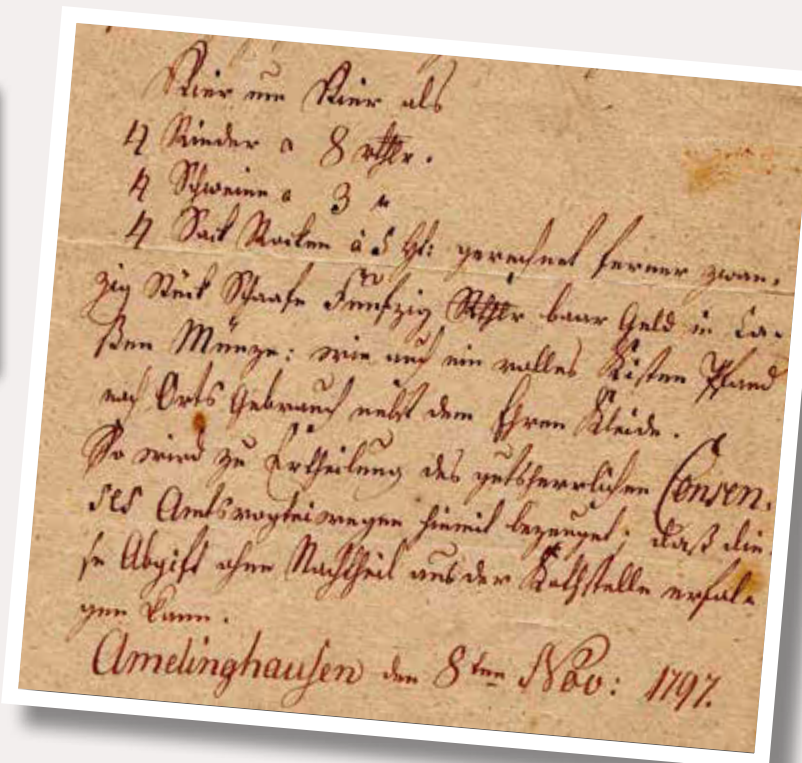 Vier um Vier als
4 Rinder a 8 rthlr.
4 Schweine a 3 "
4 Sack Rocken à 5 Ht: gerechnet ferner zwan-
zig Stück Schaafe Funfzig Rthlr baar Geld in Ca-
ßen Münze: wie auch ein volles Kisten Pfand
nach Orts Gebrauch nebst dem Ehren Kleide.
So wird zu Ertheilung des gutsherrlichen Consen-
ses Amtsvogteiwegen hiemit bezeuget; daß die-
se Abgift ohne Nachtheil aus der Kothstelle erfol-
gen kann.
Amelinghausen den 8ten Nov: 1797.